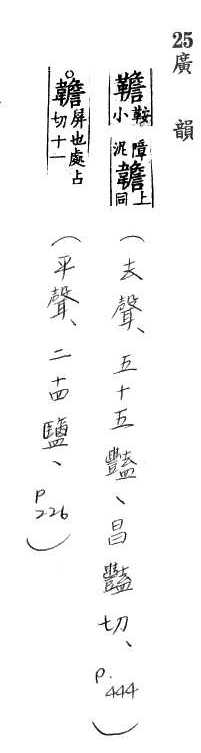 25 廣韻
鞍小障泥韂上同
(去聲、五十五豔、昌豔切、P.444)
○韂屏也處占切十一
(平聲、二十四鹽、P226)